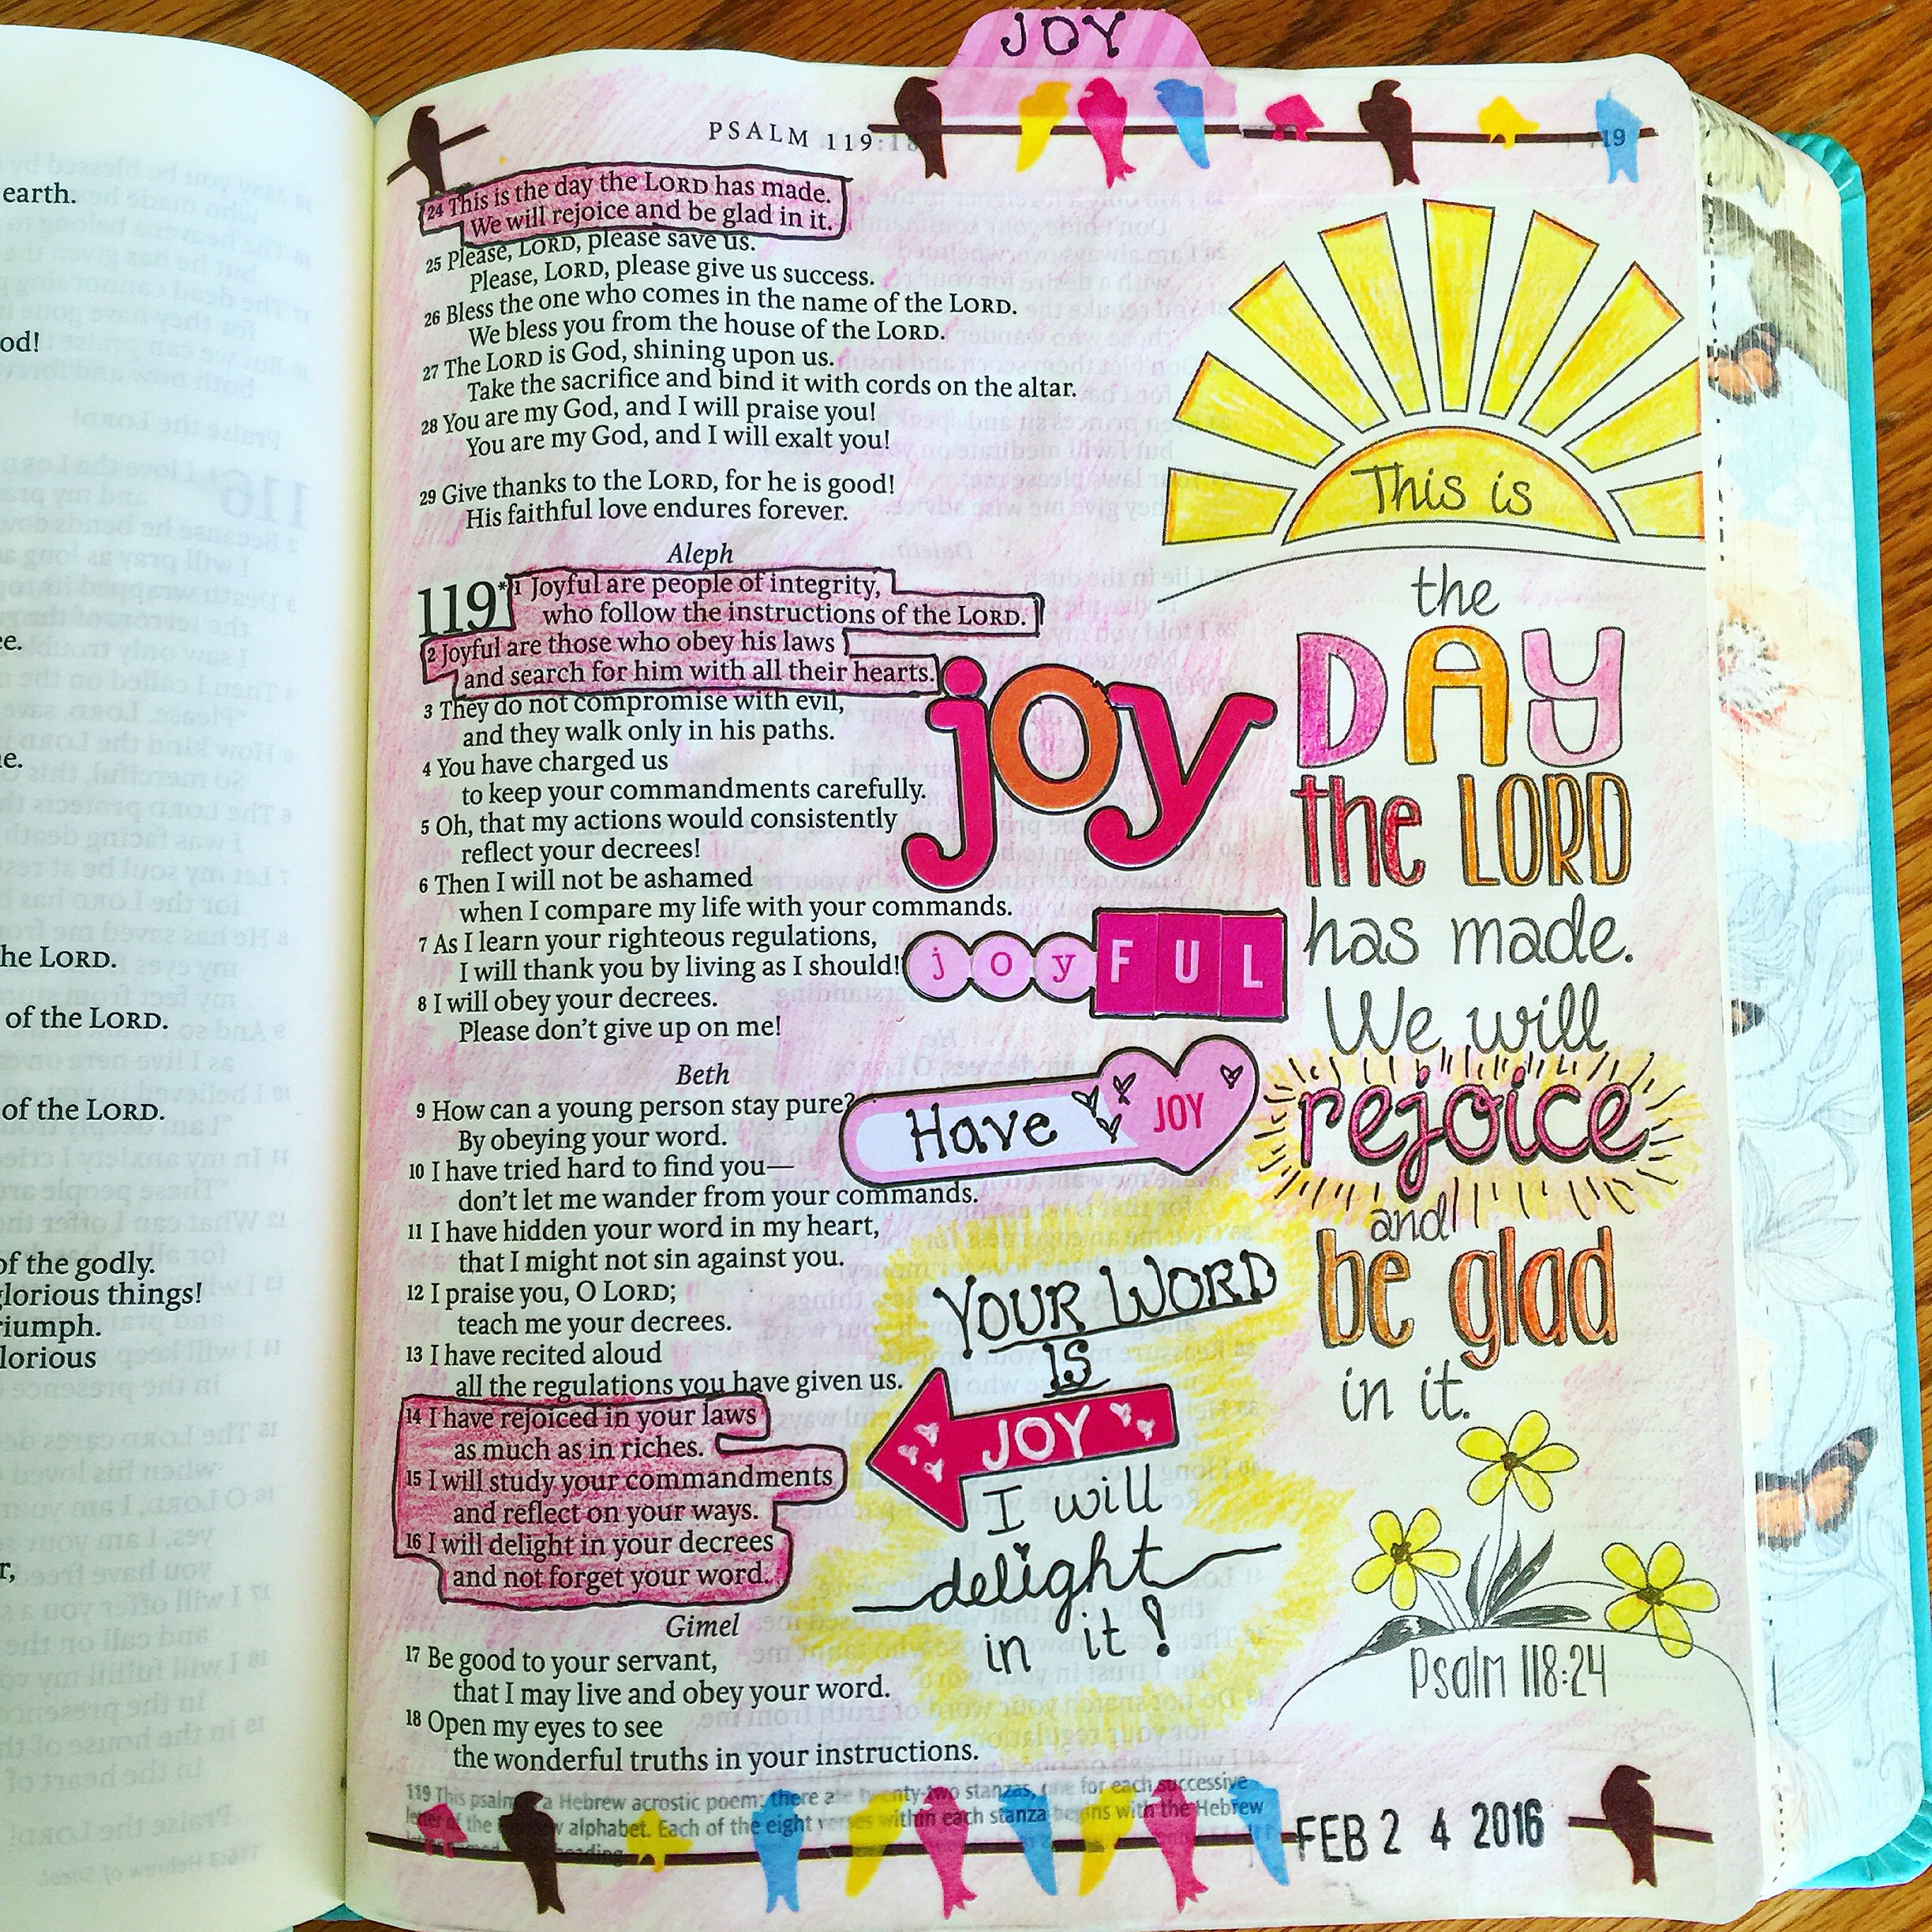 JOY
PSALM 119:18
719
earth.
od!
he LORD.
of the LORD.
of the LORD.
of the godly.
glorious things!
riumph.
lorious
24 This is the day the LORD has made.
We will rejoice and be glad in it.
25 Please, LORD, please save us.
Please, LORD, please give us success.
26 Bless the one who comes in the name of the LORD.
We bless you from the house of the LORD.
27 The LORD is God, shining upon us.
Take the sacrifice and bind it with cords on the altar.
28 You are my God, and I will praise you!
You are my God, and I will exalt you!
29 Give thanks to the LORD, for he is good!
His faithful love endures forever.
Aleph
119 *1 Joyful are people of integrity,
who follow the instructions of the LORD.
2 Joyful are those who obey his laws
and search for him with all their hearts.
3 They do not compromise with evil,
and they walk only in his paths.
4 You have charged us
to keep your commandments carefully.
5 Oh, that my actions would consistently
reflect your decrees!
6 Then I will not be ashamed
when I compare my life with your commands.
7 As I learn your righteous regulations,
I will thank you by living as I should!
8 I will obey your decrees.
Please don't give up on me!
Beth
9 How can a young person stay pure?
By obeying your word.
10 I have tried hard to find you—
don't let me wander from your commands.
11 I have hidden your word in my heart,
that I might not sin against you.
12 I praise you, O LORD;
teach me your decrees.
13 I have recited aloud
all the regulations you have given us.
14 I have rejoiced in your laws
as much as in riches.
15 I will study your commandments
and reflect on your ways.
16 I will delight in your decrees
and not forget your word.
Gimel
17 Be good to your servant,
that I may live and obey your word.
18 Open my eyes to see
the wonderful truths in your instructions.
119 This psalm a Hebrew acrostic poem; there are twenty-two stanzas, one for each successive
letter of the Hebrew alphabet. Each of the eight verses within each stanza begins with the Hebrew
joy
joyFUL
Have JOY
YOUR WORD
IS
JOY
I will
delight
in it!
This is
the
DAY
the LORD
has made.
We will
rejoice
and
be glad
in it.
Psalm 118:24
FEB 2 4 2016